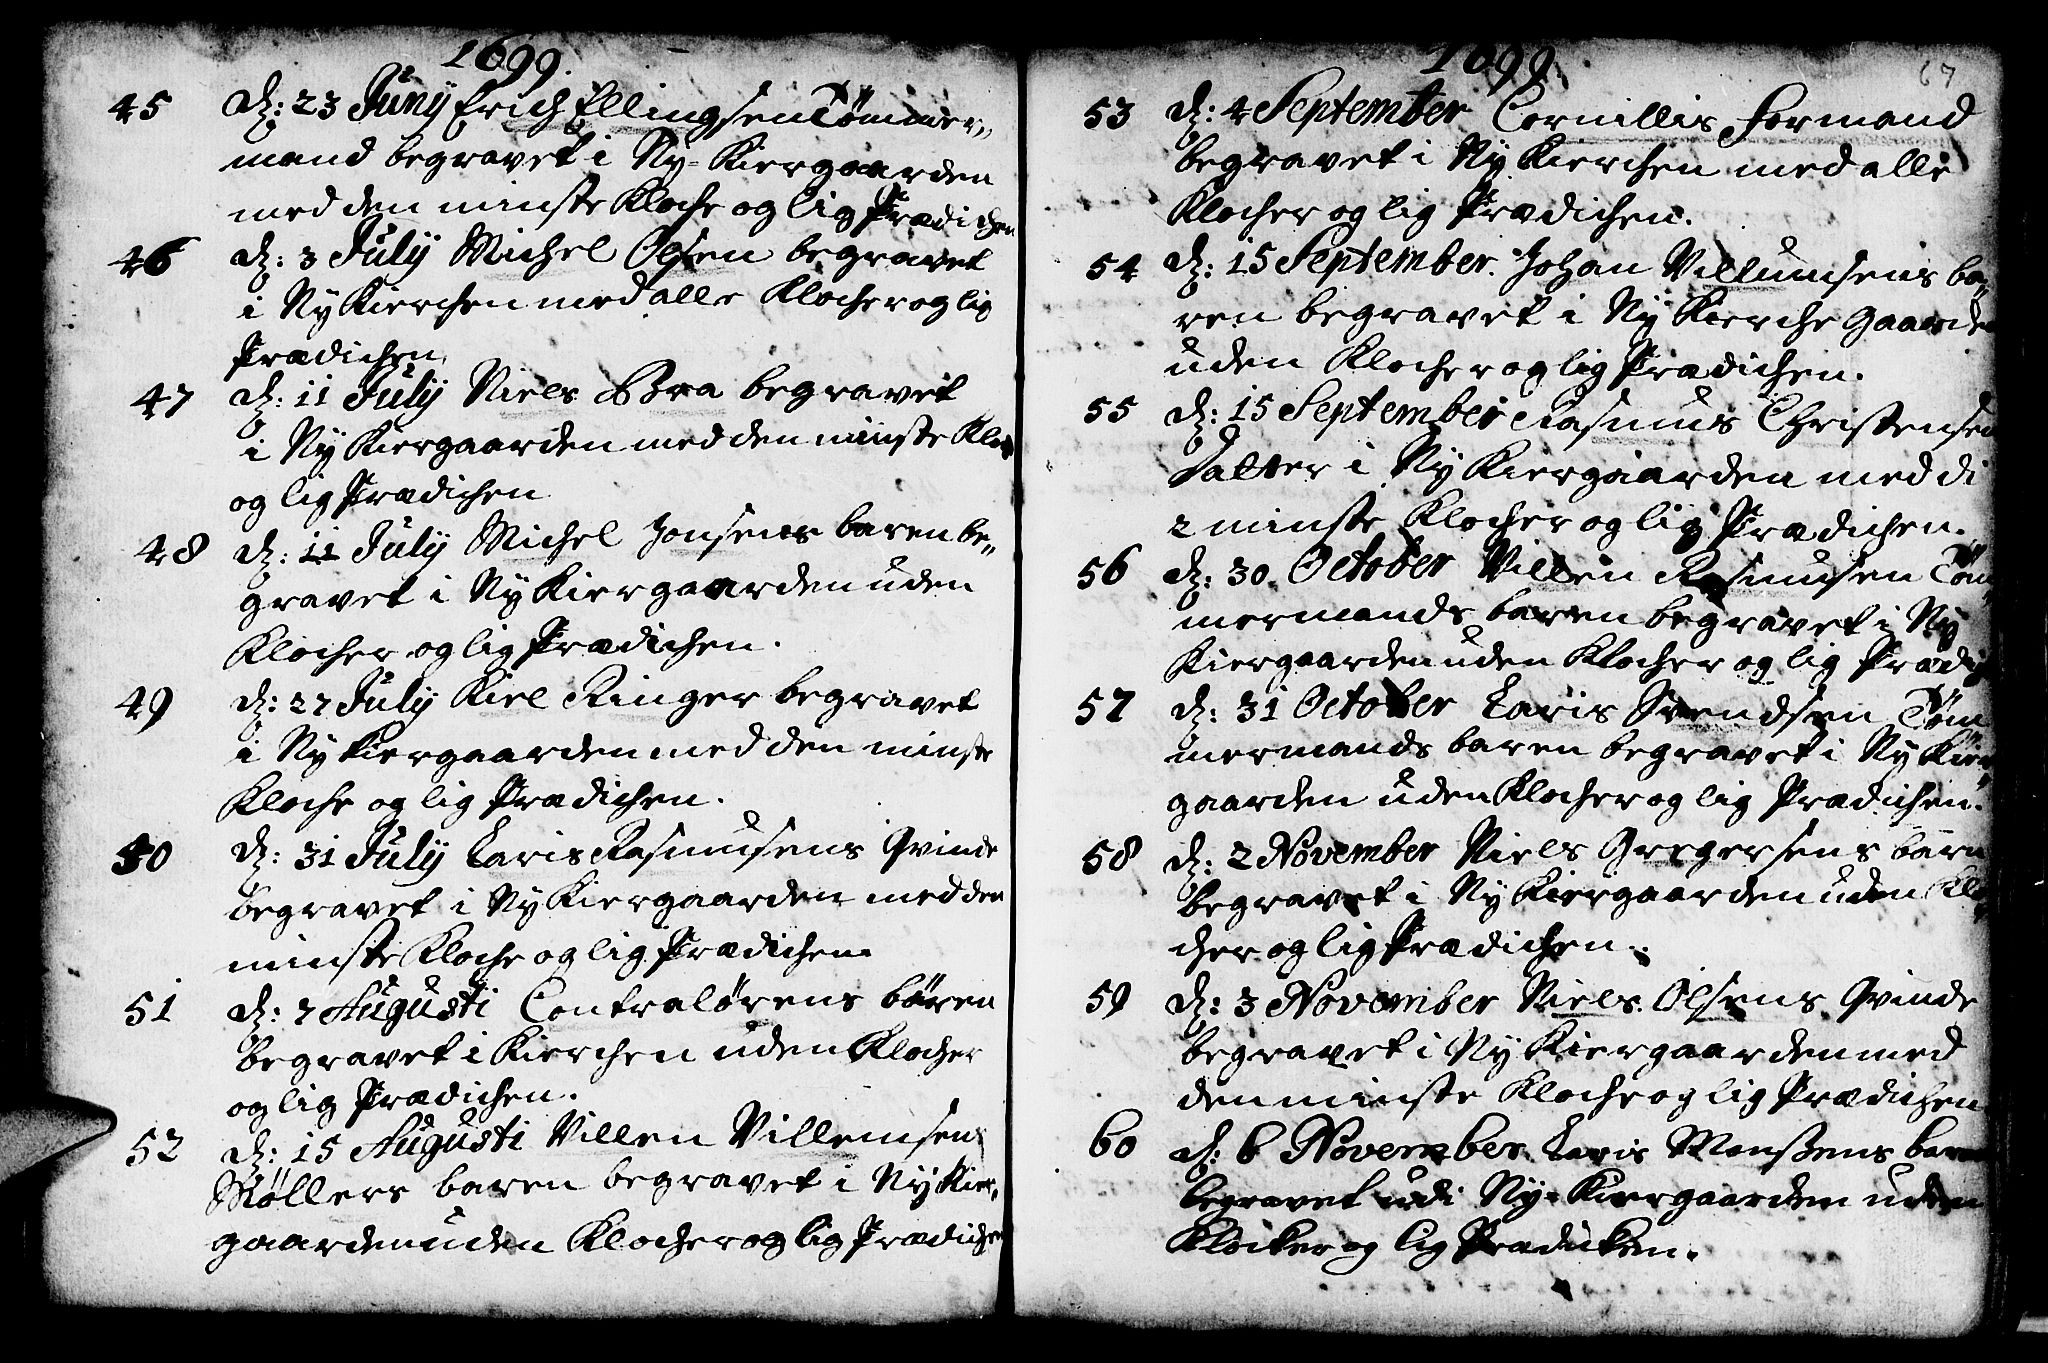 1699.
45 d: 23 Junij Erich Ellingsen Tømmer,,
mand begravet i Ny=Kiergaarden
med den minste Kloche og lig Prædichen
46 d: 3 Julij Michel Olsen begravet
i Ny Kierchen med alle Klocher og lig
Prædichen
47 d: 11 Julij Niels Bra begravet
i Ny Kiergaarden med den minste Kloche
og lig Prædichen
48 d: 11 Julij Michel Jonsens baren be,,
gravet i Ny Kiergaarden uden
Klocher og lig Prædichen.
49 d: 27 Julij Kiel Ringer begravet
i Ny Kiergaarden med den minste
Kloche og lig Prædichen.
50 d: 31 Julij Laris Rasmusens Qvinde
begravet i Ny Kiergaarden med den
minste Kloche og lig Prædichen
51 d: 7 Augusti Contralørens børen
begravet i Kierchen uden Klocher
og lig Prædichen.
52 d: 15 Augusti Villen Villemsen
Møllers baren begravet i Ny Kier,,
gaarden uden Klocher og lig Prædichen
1699.
67
53 d: 4 September Cornillis Formand
begravet i Ny Kierchen med alle
Klocher og lig Prædichen.
54 d: 15 September. Johan Villumsens ba,,
ren begravet i Ny Kierche Gaarden
uden Klocher og lig Prædichen.
55 d: 15 September Rasmus Christensen
Datter i Ny Kiergaarden med di
2 minste Klocher og lig Prædichen.
56 d: 30. October Villen Rasmusen Tøm,,
mermands baren begravet i Ny
Kiergaarden uden Klocher og lig Prædich
57 d: 31 October Laris Svendsen Tøm,,
mermands baren begravet i Ny Kier,,
gaarden uden Klocher og lig Prædichen.
58 d: 2 November Niels Gregersens barn
begravet i Ny Kiergaarden uden Klo,,
cher og lig Prædichen.
59 d: 3 November Niels Olsens Qvinde
begravet i Ny Kiergaarden med
den minste Kloche og lig Prædichen
60 d: 6 November Laris Monßens baren
begravet udi Ny=Kiergaarden uden
Klocker og lig Prædicken.